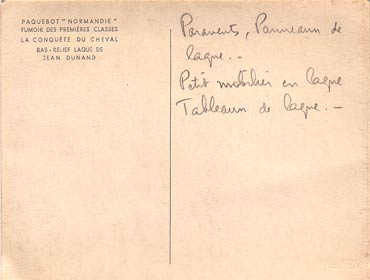 PAQUEBOT "NORMANDIE"
FUMOIR DES PREMIÈRES CLASSES
LA CONQUÊTE DU CHEVAL
BAS-RELIEF LAQUÉ DE
JEAN DUNAND
Paravents, Panneaux de
laque. -
Petit mobilier en laque
Tableaux de laque. -